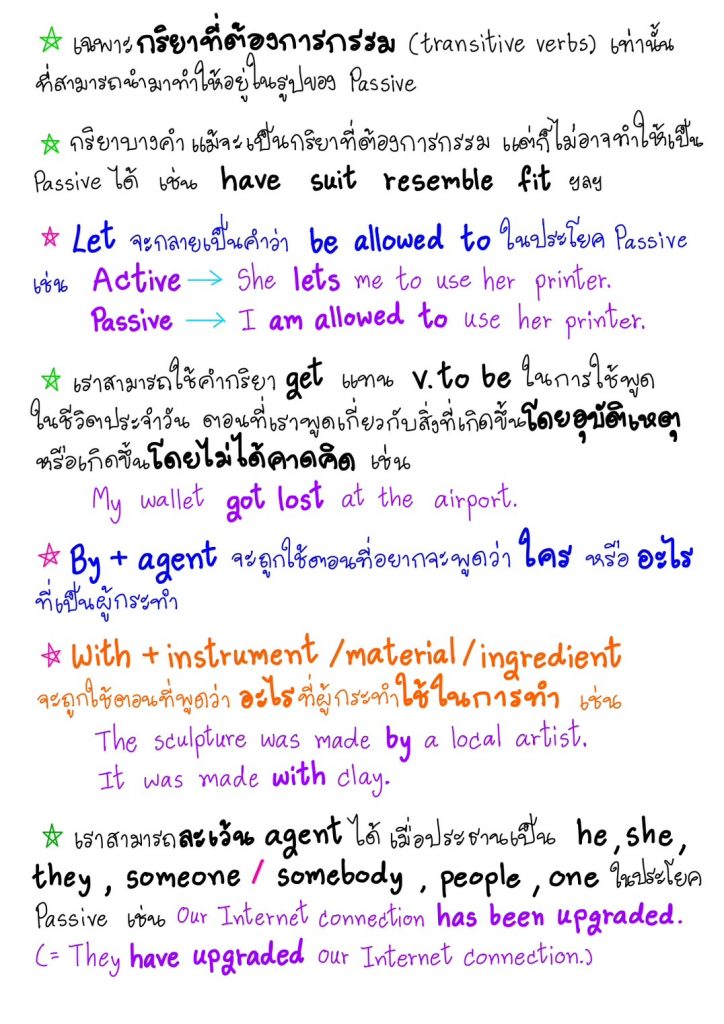 ☆ เฉพาะกริยาที่ต้องการกรรม (transitive verbs) เท่านั้น
ที่สามารถนำมาทำให้อยู่ในรูปของ Passive
☆ กริยาบางคำ แม้จะเป็นกริยาที่ต้องการกรรม แต่ก็ไม่อาจทำให้เป็น
Passive ได้ เช่น have suit resemble fit ฯลฯ
☆ Let จะกลายเป็นคำว่า be allowed to ในประโยค Passive
เช่น Active → She lets me to use her printer.
Passive → I am allowed to use her printer.
☆ เราสามารถใช้คำกริยา get แทน v. to be ในการใช้พูด
ในชีวิตประจำวัน ตอนที่เราพูดเกี่ยวกับสิ่งที่เกิดขึ้นโดยอุบัติเหตุ
หรือเกิดขึ้นโดยไม่ได้คาดคิด เช่น
My wallet got lost at the airport.
☆ By + agent จะถูกใช้ตอนที่อยากจะพูดว่า ใคร หรือ อะไร
ที่เป็นผู้กระทำ
☆ With + instrument / material / ingredient
จะถูกใช้ตอนที่พูดว่า อะไรที่ผู้กระทำใช้ในการทำ เช่น
The sculpture was made by a local artist.
It was made with clay.
☆ เราสามารถละเว้น agent ได้ เมื่อประธานเป็น he, she,
they, someone / somebody, people, one ในประโยค
Passive เช่น Our Internet connection has been upgraded.
(= They have upgraded our Internet connection.)